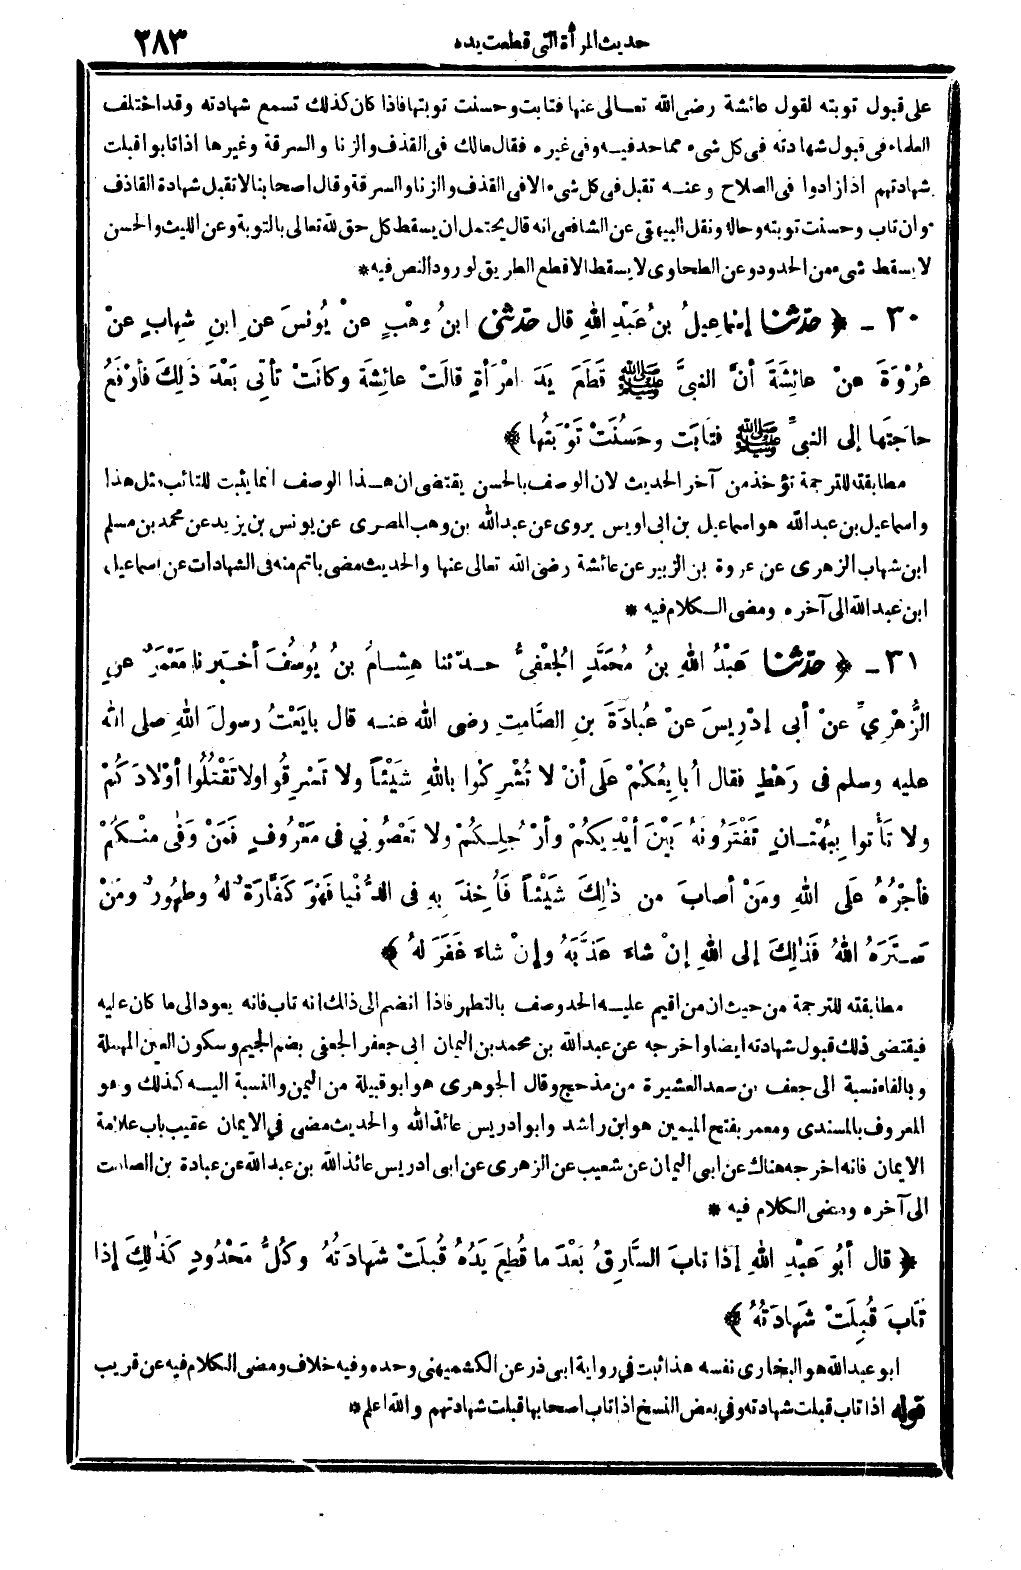 حديث المرأة التي قطعت يده ٢٨٣
على قبول توبته لقول عائشة رضى الله تعالى عنها فتابت وحسنت توبتها فاذا كان كذلك تسمع شهادته وقد اختلف
العلماء فى قبول شهادته فى كل شىء مما حد فيه وفى غيره فقال مالك فى القذف والزنا والسرقة وغيرها اذا تابوا قبلت
شهادتهم اذا زادوا فى الصلاح وعنه تقبل فى كل شىء الا فى القذف والزنا والسرقة وقال اصحابنا لا تقبل شهادة القاذف
وان تاب وحسنت توبته وحاله ونقل البيهقى عن الشافعى انه قال يحتمل ان يسقط كل حق لله تعالى بالتوبة وعن الليث والحسن
لا يسقط شىء من الحدود وعن الطحاوى لا يسقط الا قطع الطريق لورود النص فيه *
٣٠ ـ ﴿ حدثنا إسْماعِيلُ بنُ عَبْدِ اللهِ قال حدثنى ابنُ وهْبٍ عنْ يُونُسَ عنِ ابنِ شِهابٍ عنْ
عُرْوَةَ عنْ عائِشَةَ أنَّ النبيَّ ﷺ قَطَعَ يَدَ امْرَأةٍ قالَتْ عائِشَةُ وكانَتْ تأتِى بَعْدَ ذلِكَ فأرْفَعُ
حاجَتَها إلى النبيِّ ﷺ فتابَت وحَسُنَتْ تَوْبَتُها ﴾
مطابقته للترجمة تؤخذ من آخر الحديث لان الوصف بالحسن يقتضى ان هذا الوصف انما يثبت للتائب مثل هذا
واسماعيل بن عبد الله هو اسماعيل بن ابى اويس يروى عن عبد الله بن وهب المصرى عن يونس بن يزيد عن محمد بن مسلم
ابن شهاب الزهرى عن عروة بن الزبير عن عائشة رضى الله تعالى عنها والحديث مضى باتم منه فى الشهادات عن اسماعيل
ابن عبد الله الى آخره ومضى الكلام فيه *
٣١ ـ ﴿ حدثنا عَبْدُ اللهِ بنُ مُحَمَّدٍ الجُعْفِىُّ حدثنا هِشامُ بنُ يُوسُفَ أخبرنا مَعْمَرٌ عنِ
الزُّهْرِيِّ عنْ أبى إدْرِيسَ عنْ عُبادَةَ بنِ الصَّامِتِ رضى الله عنه قال بايَعْتُ رسولَ اللهِ صلى الله
عليه وسلم فى رَهْطٍ فقال أُبايِعُكُمْ عَلَى أنْ لا تُشْرِكُوا باللهِ شَيْئاً ولا تَسْرِقُوا ولا تَقْتُلُوا أوْلادَكُمْ
ولا تَأْتوا بِبُهْتانٍ تَفْتَرُونَهُ بَيْنَ أيْدِيكُمْ وأرْجُلِكُمْ ولا تَعْصُونِي فى مَعْرُوفٍ فَمَنْ وَفَى مِنْكُمْ
فأجْرُهُ عَلَى اللهِ ومَنْ أصابَ من ذٰلِكَ شَيْئاً فَأُخِذَ بِهِ فى الدُّنْيا فَهْوَ كَفَّارَةٌ لهُ وطَهُورٌ ومَنْ
سَتَرَهُ اللهُ فَذٰلِكَ إلى اللهِ إنْ شاءَ عَذَّبَهُ وإنْ شاءَ غَفَرَ لهُ ﴾
مطابقته للترجمة من حيث ان من اقيم عليه الحد وصف بالتطهر فاذا انضم الى ذلك انه تاب فانه يعود الى ما كان عليه
فيقتضى ذلك قبول شهادته ايضا واخرجه عن عبد الله بن محمد بن اليمان ابى جعفر الجعفى بضم الجيم وسكون العين المهملة
وبالفاء نسبة الى جعف بن سعد العشيرة من مذحج وقال الجوهرى هو ابو قبيلة من اليمن والنسبة اليه كذلك وهو
المعروف بالمسندى ومعمر بفتح الميمين هو ابن راشد وابو ادريس عائذ الله والحديث مضى في الايمان عقيب باب علامة
الايمان فانه اخرجه هناك عن ابى اليمان عن شعيب عن الزهرى عن ابى ادريس عائذ الله بن عبد الله عن عبادة بن الصامت
الى آخره ومضى الكلام فيه *
﴿ قال أبُو عَبْدِ اللهِ إذا تابَ السَّارِقُ بَعْدَ ما قُطِعَ يَدُهُ قُبِلَتْ شَهادَتُهُ وكُلُّ مَحْدُودٍ كَذٰلِكَ إذا
تَابَ قُبِلَتْ شَهَادَتُهُ ﴾
ابو عبد الله هو البخارى نفسه هذا ثبت في رواية ابى ذر عن الكشميهنى وحده وفيه خلاف ومضى الكلام فيه عن قريب
قوله اذا تاب قبلت شهادته وفي بعض النسخ اذا تاب اصحابها قبلت شهادتهم والله اعلم *